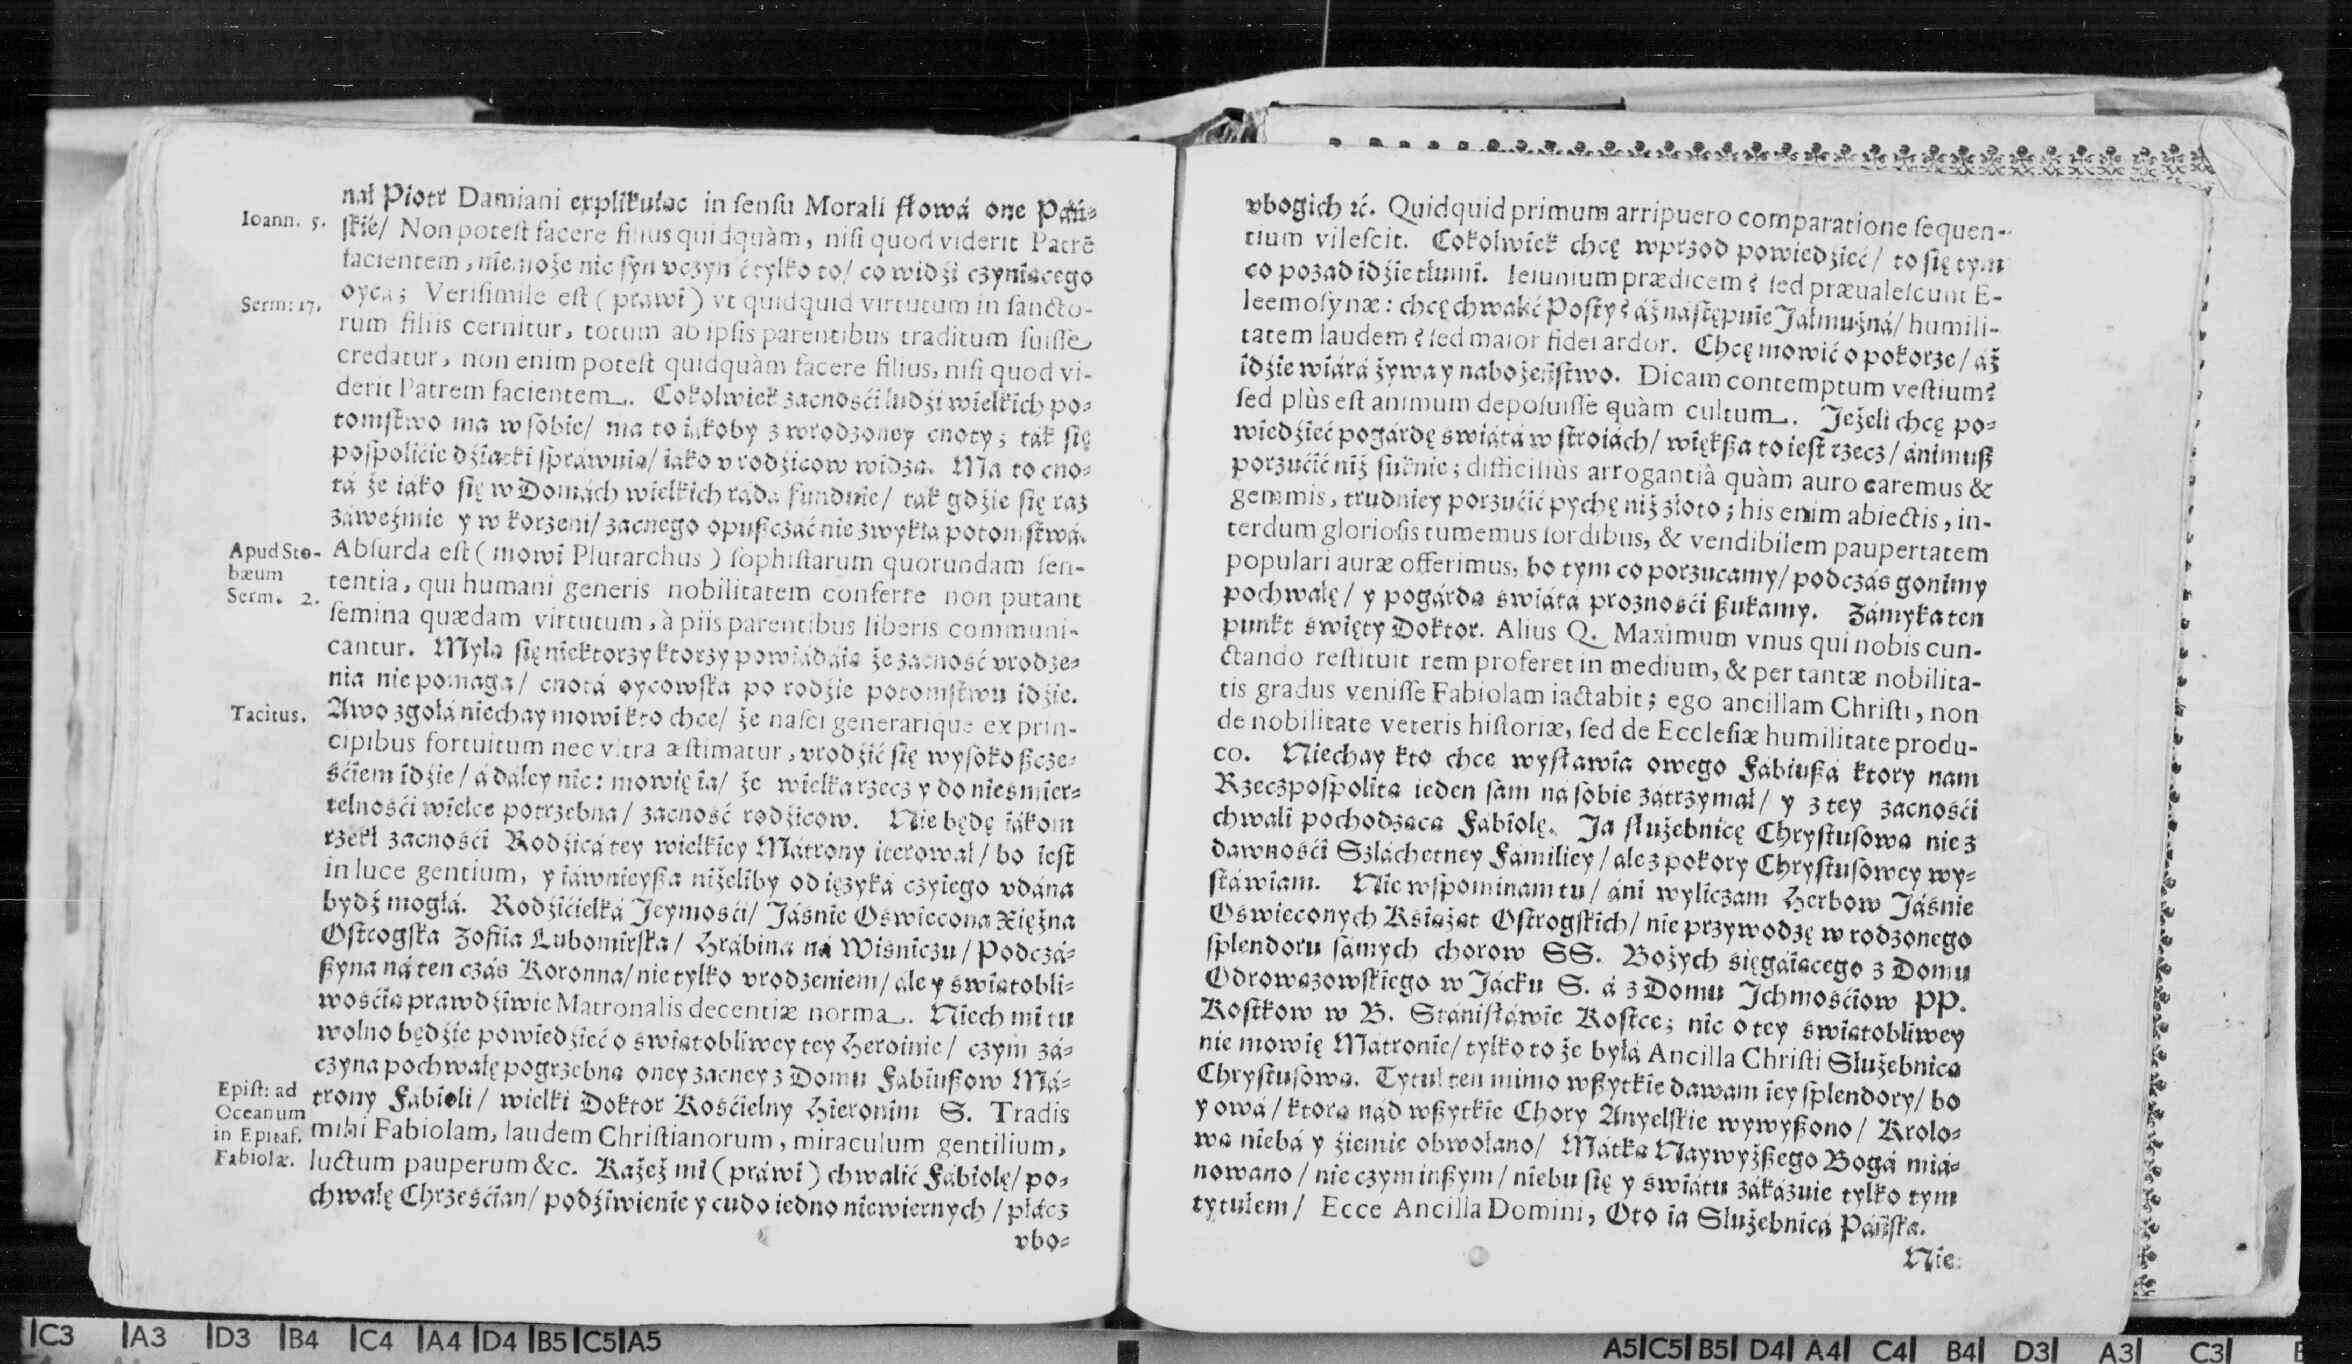 nał Piotr Damiani explikuiąc in ſenſu Morali ſłowá one Páń-
Ioann. 5.
ſkie/ Non poteſt facere filius quidquàm, niſi quod viderit Patrē
facientem, niemoże nic ſyn vczynić tylko to/ co widźi czyniącego
oycá; Veriſimile eſt (prawi) vt quidquid virtutum in ſancto-
Serm: 17.
rum filiis cernitur, totum ab ipſis parentibus traditum fuiſſe
credatur, non enim poteſt quidquàm facere filius, niſi quod vi-
derit Patrem facientem. Cokolwiek zacnośći ludźi wielkich po-
tomſtwo ma w ſobie/ ma to iákoby z wrodzoney cnoty; ták ſię
poſpolićie dźiatki ſpráwuią/ iáko v rodźicow widzą. Ma to cno-
tá że iáko ſię w Domách wielkich rádá funduie/ ták gdźie ſię raz
záweźmie y w korzeni/ zacnego opuſzczáć nie zwykłá potomſtwá.
Apud Sto-
bæum
Serm. 2.
Abſurda eſt (mowi Plutarchus) ſophiſtarum quorundam ſen-
tentia, qui humani generis nobilitatem conferre non putant
ſemina quædam virtutum, à piis parentibus liberis communi-
cantur. Mylą ſię niektorzy ktorzy powiádáią że zacność vrodze-
nia nie pomaga/ cnotá oycowſka po rodźie potomſtwu idźie.
Tacitus.
Awo zgołá niechay mowi kto chce/ że naſci generarique ex prin-
cipibus fortuitum nec vltra æſtimatur, vrodźić ſię wyſoko ſzcze-
śćiem idźie/ á dáley nic: mowię ia/ że wielka rzecz y do nieśmier-
telnośći wielce potrzebna/ zacność rodźicow. Nie będę iákom
rzekł zacnośći Rodźicá tey wielkiey Mátrony iterował/ bo ieſt
in luce gentium, y iáwnieyſza niżeliby od ięzyká czyiego vdána
bydź mogłá. Rodźićielká Jeymośći/ Jáśnie Oświecona Xiężna
Oſtrogſka Zofiia Lubomirſka/ Hrábina ná Wiśniczu/ Podczá-
ſzyna ná ten czás Koronna/ nie tylko vrodzeniem/ ále y świątobli-
wośćią prawdźiwie Matronalis decentiæ norma. Niech mi tu
wolno będźie powiedźieć o świątobliwey tey Heroinie/ czym zá-
czyna pochwałę pogrzebną oney zacney z Domu Fabiuſzow Má-
Epiſt: ad
Oceanum
in Epitaf.
Fabiolæ.
trony Fabioli/ wielki Doktor Kośćielny Hieronim S. Tradis
mihi Fabiolam, laudem Chriſtianorum, miraculum gentilium,
luctum pauperum &c. Każeż mi (práwi) chwalić Fábiolę/ po-
chwałę Chrześćian/ podźiwienie y cudo iedno niewiernych/ płácz
vbo-
vbogich ꝛć. Quidquid primum arripuero comparatione ſequen-
tium vileſcit. Cokolwiek chcę wprzod powiedźieć/ to ſię tym
co pozad idźie tłumi. Ieiunium prædicem? ſed præualeſcunt E-
leemoſynæ: chcę chwalić Poſty? áż náſtępuie Jáłmużná/ humili-
tatem laudem? ſed maior fidei ardor. Chcę mowić o pokorze/ áż
idźie wiárá żywa y nabożeńſtwo. Dicam contemptum veſtium?
ſed plùs eſt animum depoſuiſſe quàm cultum. Jeżeli chcę po-
wiedźieć pogárdę świátá w ſtroiách/ więkſza to ieſt rzecz/ ánimuſz
porzućić niż ſuknie; difficiliùs arrogantiâ quàm auro caremus &
gemmis, trudniey porzućić pychę niż złoto; his enim abiectis, in-
terdum glorioſis tumemus ſordibus, & vendibilem paupertatem
populari auræ offerimus, bo tym co porzucamy/ podczás gonimy
pochwałę/ y pogárdą świátá proznośći ſzukamy. Zámyka ten
punkt święty Doktor. Alius Q. Maximum vnus qui nobis cun-
ctando reſtituit rem proferet in medium, & per tantæ nobilita-
tis gradus veniſſe Fabiolam iactabit; ego ancillam Chriſti, non
de nobilitate veteris hiſtoriæ, ſed de Eccleſiæ humilitate produ-
co. Niechay kto chce wyſławia owego Fábiuſzá ktory nam
Rzeczpoſpolitą ieden ſam na ſobie zátrzymał/ y z tey zacnośći
chwali pochodzącą Fabiolę. Ja ſłużebnicę Chryſtuſową nie z
dawnośći Szláchetney Familiey/ ale z pokory Chryſtuſowey wy-
ſtáwiam. Nie wſpominam tu/ áni wyliczam Herbow Jáśnie
Oświeconych Kśiążąt Oſtrogſkich/ nie przywodzę w rodzonego
ſplendoru ſámych chorow SS. Bożych śięgáiącego z Domu
Odrowążowſkiego w Jácku S. á z Domu Ichmośćiow PP.
Koſtkow w B. Stániſławie Koſtce; nic o tey świątobliwey
nie mowię Mátronie/ tylko to że byłá Ancilla Chriſti Służebnicą
Chryſtuſową. Tytuł ten mimo wſzytkie dawam iey ſplendory/ bo
y owá/ ktorą nád wſzytkie Chory Anyelſkie wywyſzono/ Krolo-
wą niebá y źiemie obwołano/ Mátką Naywyżſzego Bogá miá-
nowano/ nie czym inſzym/ niebu ſię y świátu zákázuie tylko tym
tytułem/ Ecce Ancilla Domini, Oto ia Służebnicá Páńſka.
Nie
C3 A3 D3 B4 C4 A4 D4 B5 C5 A5
A5 C5 B5 D4 A4 C4 B4 D3 A3 C3